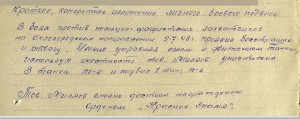 Краткое, конкретное изложение личного боевого подвига
В боях против немецко-фашистских захватчиков
на Белгородском направлении 5-7-43 г. проявил
и отвагу. Умело управляя огнем и движением танка,
используя местность тов. Миляев уничтожил
2 танка пр-ка и пр-ка
Тов. Миляев вполне достоин награждению
Орденом „Красное Знамя“.